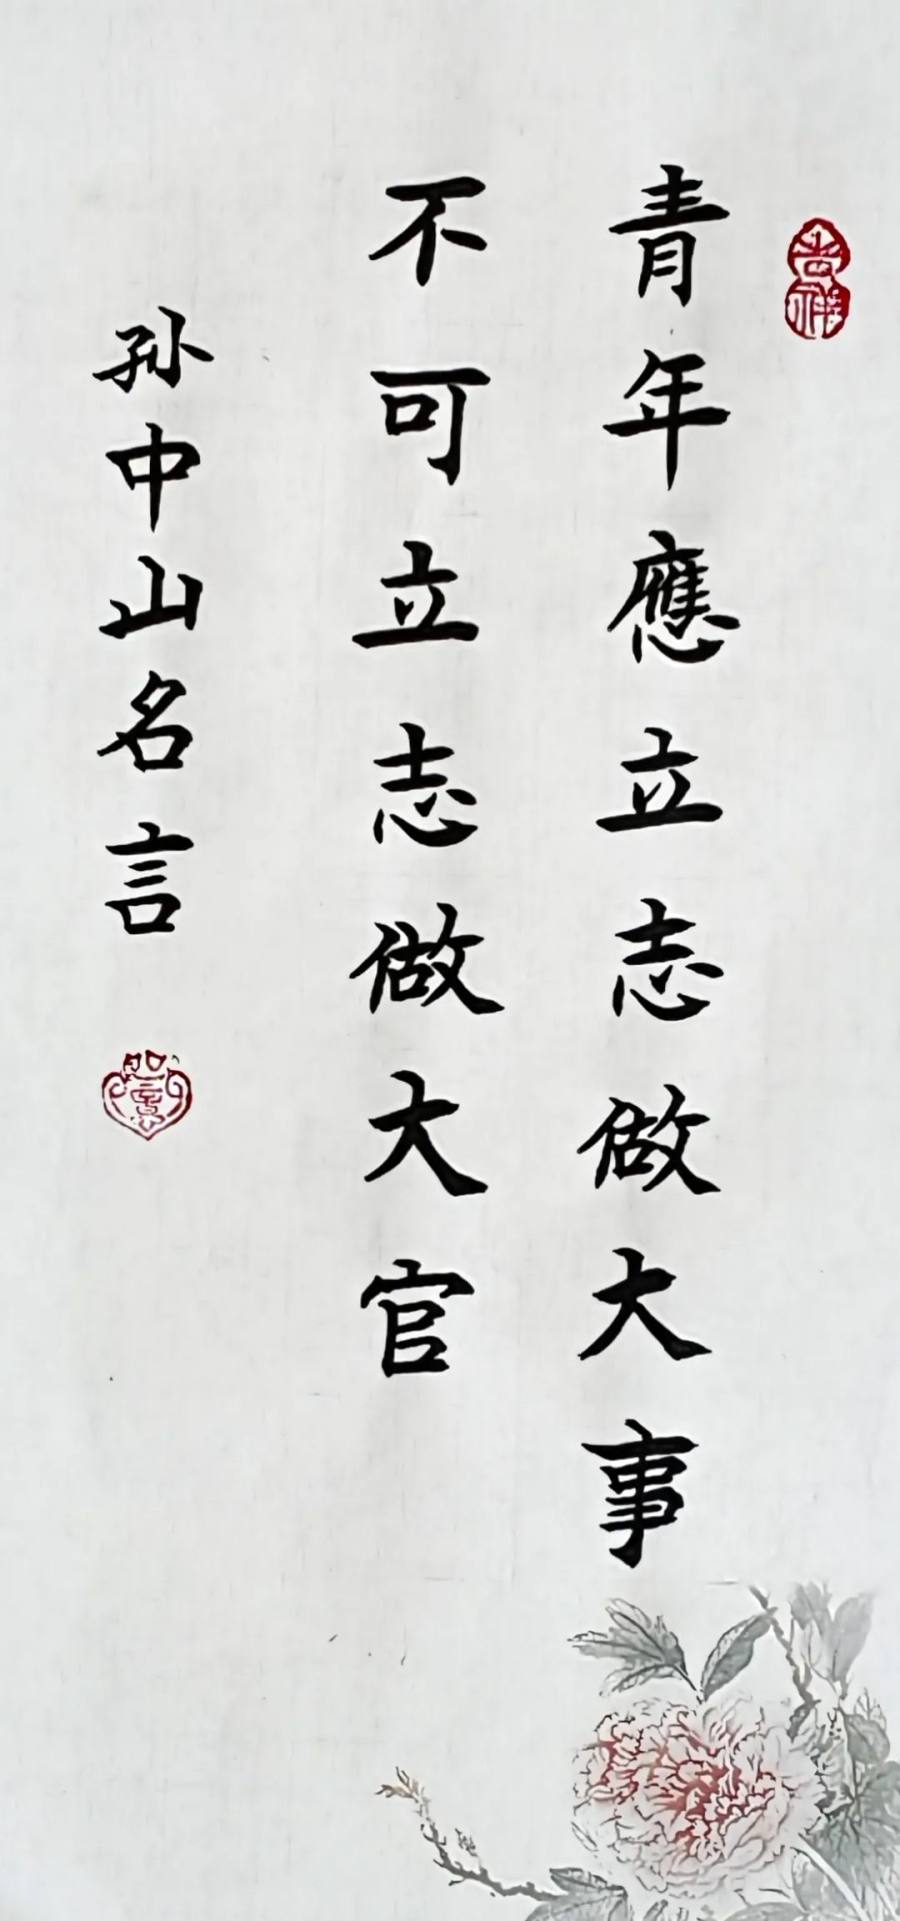 吉祥
青年應立志做大事
不可立志做大官
孙中山名言
如意